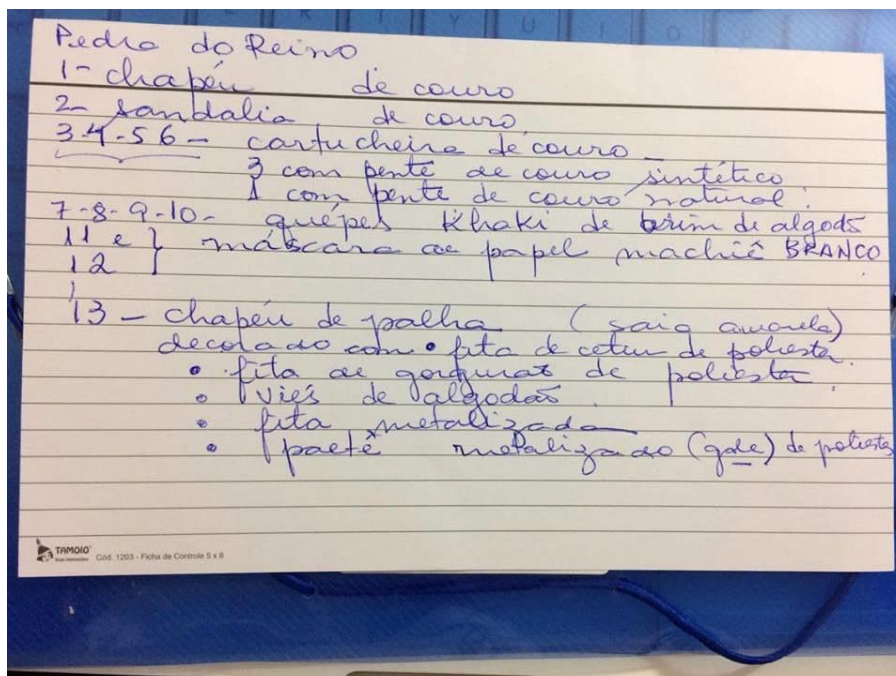 Pedra do Reino
1- chapéu de couro
2- sandalia de couro
3-4-5 6 - cartucheira de couro -
3 com pente de couro sintético
1 com pente de couro natural.
7-8-9-10- quépes Khaki de brim de algodã
11 e } máscara de papel machiê BRANCO
12
13 - chapéu de palha (saia amarela)
decolado com • fita de cetim de poliester.
• fita de gorgurão de poliester.
• viés de algodão.
• fita metalizada
• paetê metalizado (gale) de poliester
TAMOIO
Cód. 1203 - Ficha de Controle 5 x 8